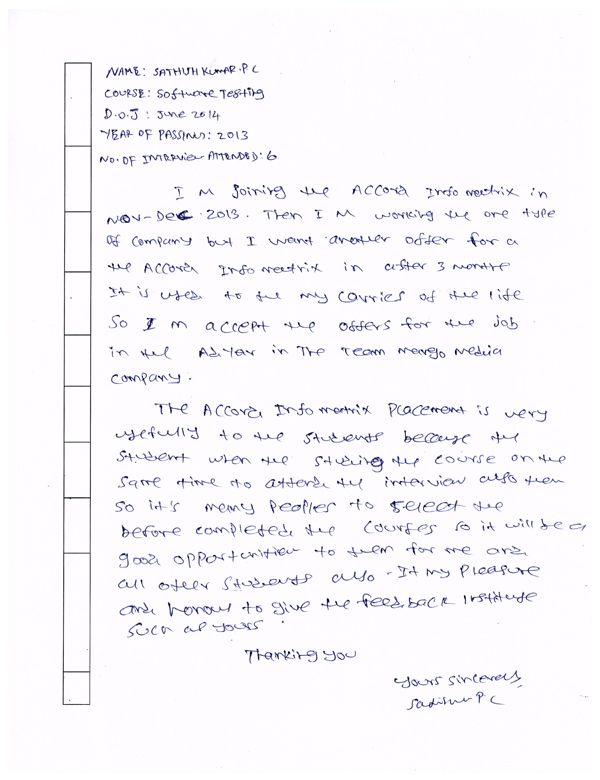 NAME: SATHISH KUMAR.P C
COURSE: Software Testing
D.O.J : June 2014
YEAR OF PASSING: 2013
NO. OF INTERVIEW ATTENDED: 6
I M Joining the Accord Info matrix in
NOV-DEC 2013. Then I M working the one type
of company but I want another offer for a
the Accord Info meetrix in after 3 months
It is used to the my carries of the life
So I m accept the offers for the job
in the Adyar in The Team mango media
company.
The Accord Info metrix Placement is very
usefully to the students because the
student when the studing the course on the
same time to attend the interview also then
so it's memy peoples to select the
before completed the courses so it will be a
good opportunities to them for me and
all other students also - It my pleasure
and honour to give the feedback institute
such as yours
Thanking you
yours sincerely
P C